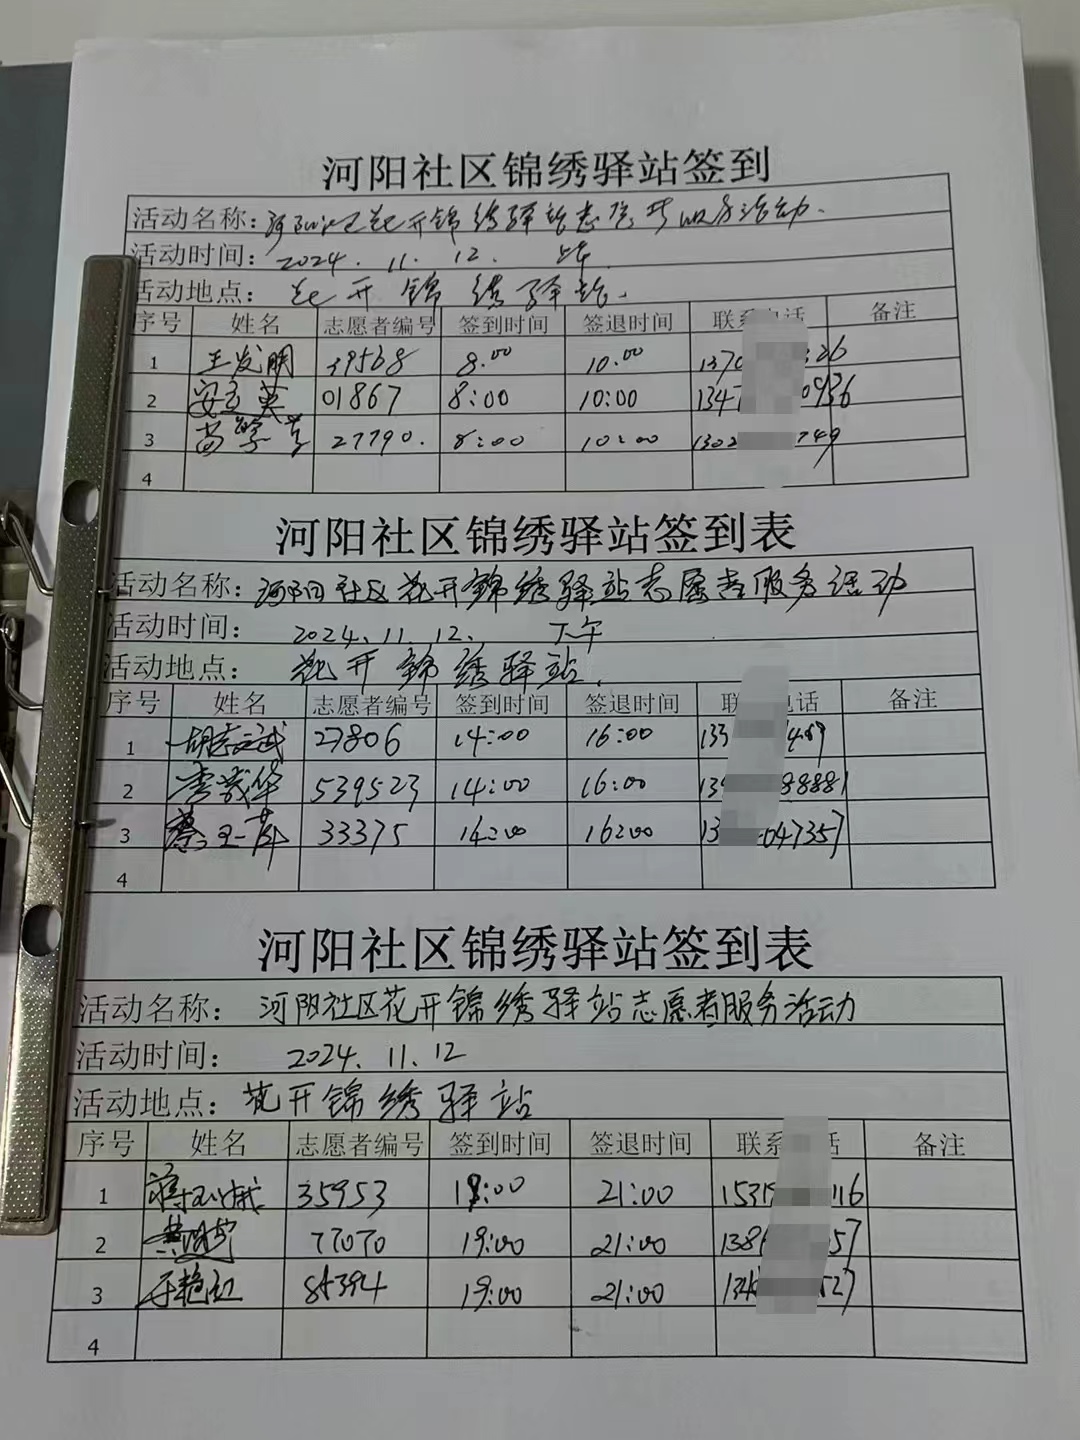 河阳社区锦绣驿站签到
活动名称：河阳社区花开锦绣驿站志愿者服务活动.
活动时间： 2024. 11. 12. 上午
活动地点： 花开锦绣驿站.
序号 姓名 志愿者编号 签到时间 签退时间 联系电话 备注
1 王发明 39568 8.00 10.00 137 326
2 安立英 01867 8:00 10:00 134 0936
3 苗 27790. 8:00 10:00 1302 749
4
河阳社区锦绣驿站签到表
活动名称：河阳社区花开锦绣驿站志愿者服务活动
活动时间： 2024.11.12. 下午
活动地点： 花开锦绣驿站.
序号 姓名 志愿者编号 签到时间 签退时间 联 电话 备注
1 胡志武 27806 14:00 16:00 133
2 李茂华 539523 14:00 16:00 13 88881
3 蔡玉萍 33375 14:00 16:00 13 047357
4
河阳社区锦绣驿站签到表
活动名称： 河阳社区花开锦绣驿站志愿者服务活动
活动时间： 2024.11.12
活动地点： 花开锦绣驿站
序号 姓名 志愿者编号 签到时间 签退时间 联系 话 备注
1 35953 19:00 21:00 1531 116
2 77070 19:00 21:00 138 57
3 于艳红 85394 19:00 21:00 134 527
4